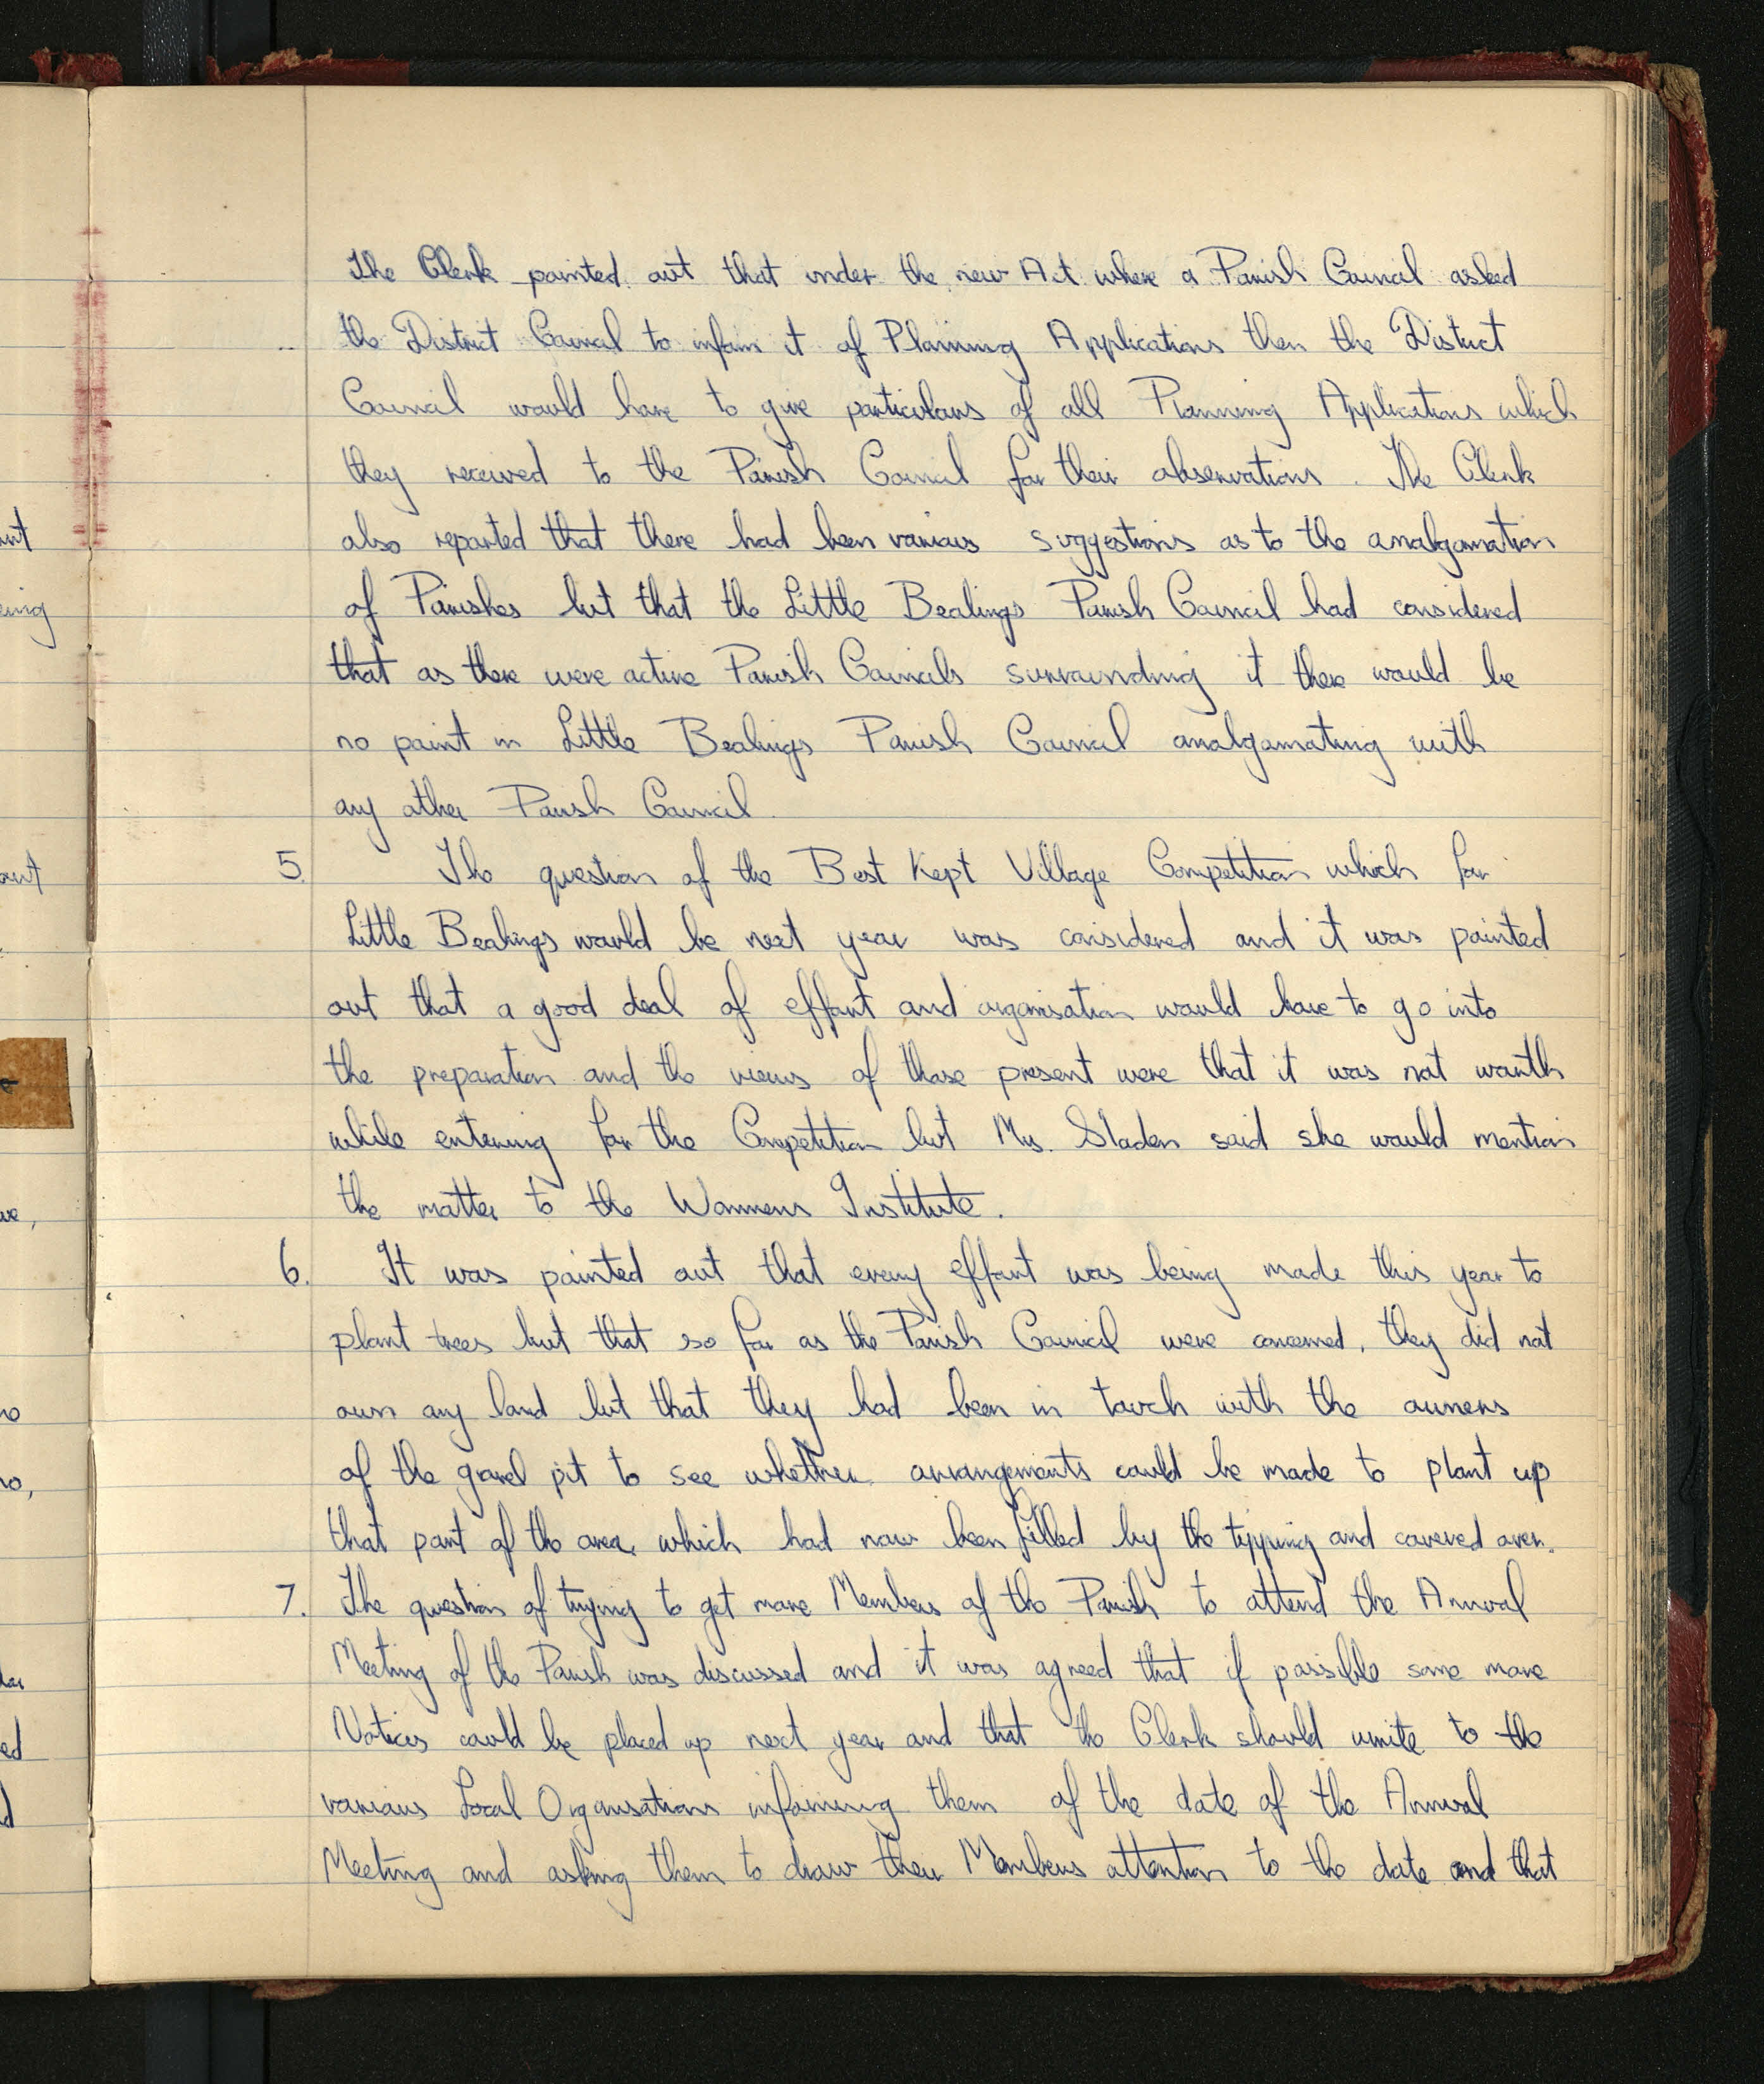 The Clerk pointed out that under the new Act where a Parish Council asked
the District Council to inform it of Planning Applications then the District
Council would have to give particulars of all Planning Applications which
they received to the Parish Council for their observations. The Clerk
also reported that there had been various suggestions as to the amalgamation
of Parishes but that the Little Bealings Parish Council had considered
that as there were active Parish Councils surrounding it there would be
no point in Little Bealings Parish Council amalgamating with
any other Parish Council.
5. The question of the Best Kept Village Competition which for
Little Bealings would be next year was considered and it was pointed
out that a good deal of effort and organisation would have to go into
the preparation and the views of those present were that it was not worth
while entering for the Competition but Mrs. Sladen said she would mention
the matter to the Womens Institute.
6. It was pointed out that every effort was being made this year to
plant trees but that so far as the Parish Council were concerned, they did not
own any land but that they had been in touch with the owners
of the gravel pit to see whether arrangements could be made to plant up
that part of the area which had now been filled by the tipping and covered over.
7. The question of trying to get more Members of the Parish to attend the Annual
Meeting of the Parish was discussed and it was agreed that if possible some more
Notices could be placed up next year and that the Clerk should write to the
various Local Organisations informing them of the date of the Annual
Meeting and asking them to draw their Members attention to the date and that